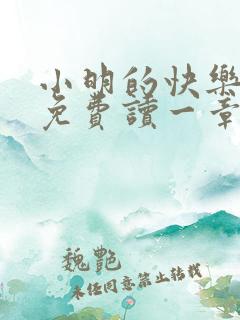 小明的快樂
免費讀一章
魏艷
未任同意禁止转载